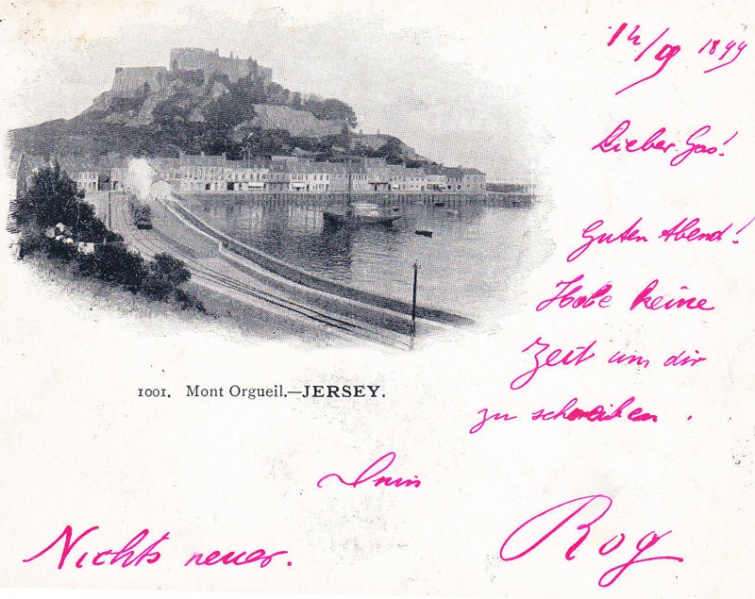 1001. Mont Orgueil.—JERSEY.
1899
Lieber Gas!
Guten Abend!
Habe keine
Zeit um dir
zu schreiben.
Rog
Nichts neues.